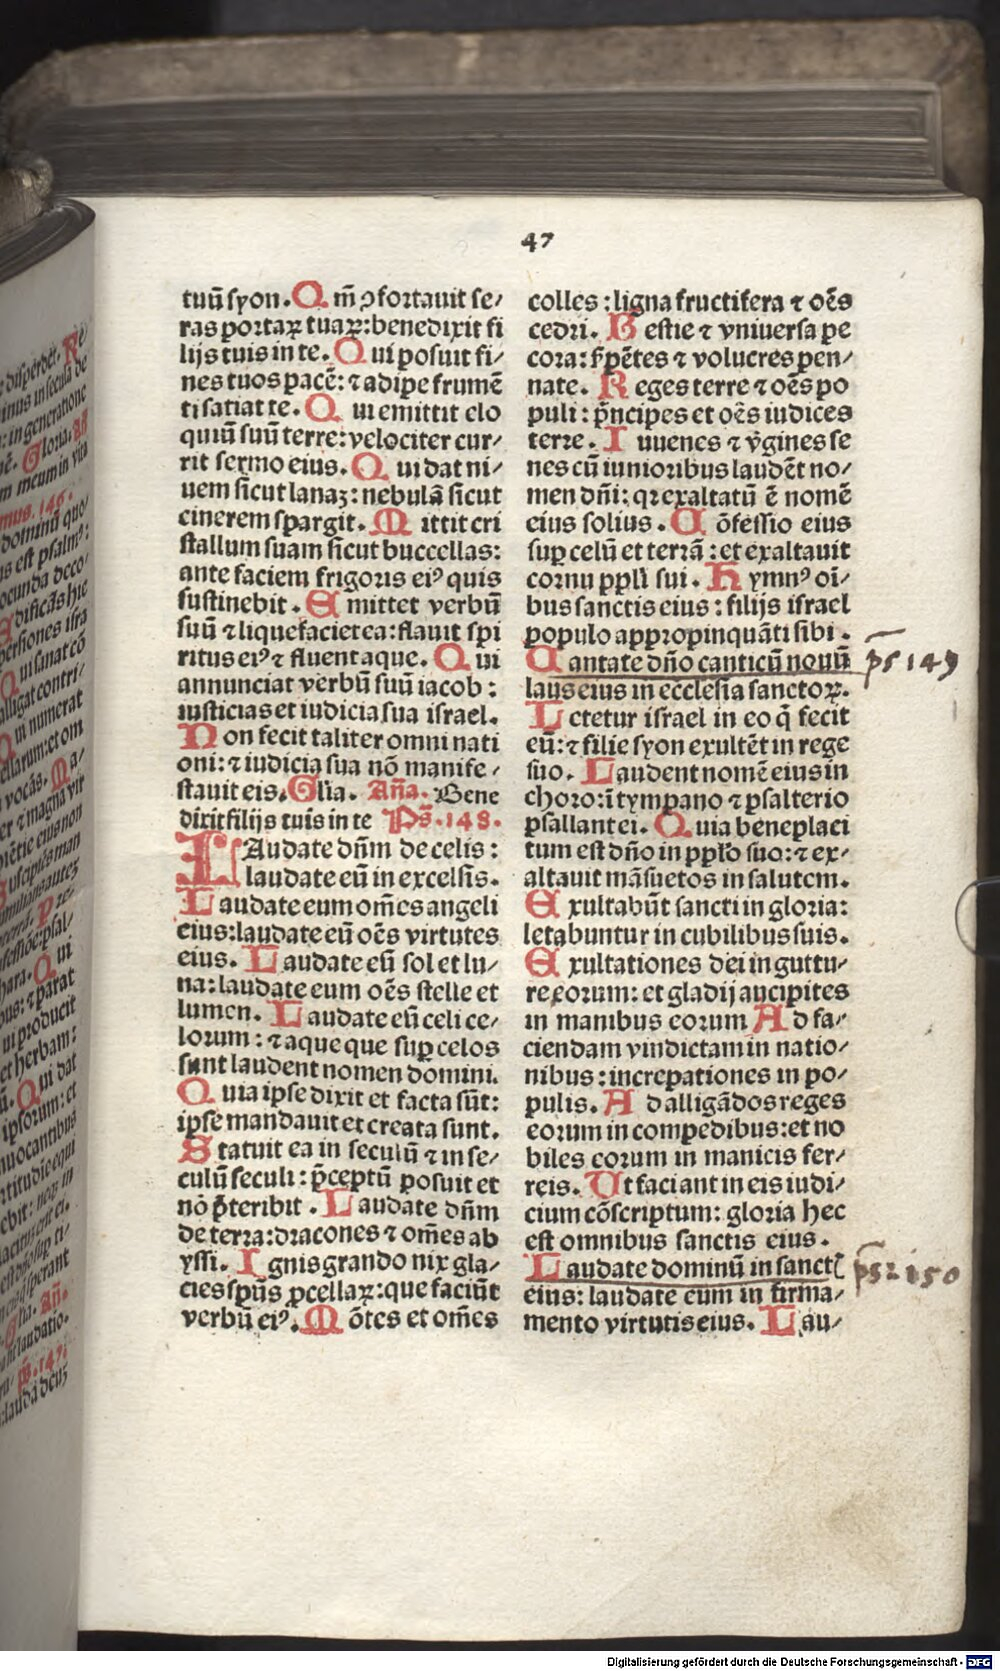 47
tuū syon. Qm̄ ꝯfortauit se/
ras portaꝝ tuaꝝ: benedixit fi
lijs tuis in te. Qui posuit fi/
nes tuos pacē: ⁊ adipe frumē
ti satiat te. Qui emittit elo
quiū suū terre: velociter cur/
rit sermo eius. Qui dat ni/
uem sicut lanaȝ: nebulā sicut
cinerem spargit. Mittit cri
stallum suam sicut buccellas:
ante faciem frigoris eiꝰ quis
sustinebit. Emittet verbū
suū ⁊ liquefaciet ea: flauit spi
ritus eiꝰ ⁊ fluent aque. Qui
annunciat verbū suū iacob:
iusticias et iudicia sua israel.
Non fecit taliter omni nati
oni: ⁊ iudicia sua nō manife/
stauit eis. Gl'ia. Aña. Bene
dixit filijs tuis in te Ps̄. 148.
LAudate dn̄m de celis:
laudate eū in excelsis.
Laudate eum om̄es angeli
eius: laudate eū oēs virtutes
eius. Laudate eū sol et lu/
na: laudate eum oēs stelle et
lumen. Laudate eū celi ce/
lorum: ⁊ aque que suꝑ celos
sunt laudent nomen domini.
Quia ipse dixit et facta sūt:
ipse mandauit et creata sunt.
Statuit ea in seculū ⁊ in se/
culū seculi: p̄ceptū posuit et
nō p̄teribit. Laudate dn̄m
de terra: dracones ⁊ om̄es ab
yssi. Ignis grando nix gla/
cies sp̄us ꝓcellaꝝ: que faciūt
verbū eiꝰ. Mōtes et om̄es
colles: ligna fructifera ⁊ oēs
cedri. Bestie ⁊ vniuersa pe
cora: s̄pētes ⁊ volucres pen/
nate. Reges terre ⁊ oēs po
puli: p̄ncipes et oēs iudices
terre. Iuuenes ⁊ v̄gines se
nes cū iunioribus laudēt no/
men dn̄i: qꝛ exaltatū ē nomē
eius solius. Cōfessio eius
suꝑ celū et terrā: et exaltauit
cornu ppl̄i sui. Hymnꝰ oī/
bus sanctis eius: filijs israel
populo appropinquāti sibi.
Cantate dn̄o canticū nouū ps 149
laus eius in ecclesia sanctoꝝ.
Letetur israel in eo q̄ fecit
eū: ⁊ filie syon exultēt in rege
suo. Laudent nomē eius in
choro: ī tympano ⁊ psalterio
psallant ei. Quia beneplaci
tum est dn̄o in pplo suo: ⁊ ex/
altauit māsuetos in salutem.
Exultabūt sancti in gloria:
letabuntur in cubilibus suis.
Exultationes dei in guttu/
re eorum: et gladij ancipites
in manibus eorum Ad fa/
ciendam vindictam in natio/
nibus: increpationes in po/
pulis. Ad alligādos reges
eorum in compedibus: et no
biles eorum in manicis fer/
reis. Ut faciant in eis iudi/
cium cōscriptum: gloria hec
est omnibus sanctis eius.
Laudate dominū in sanct' ps 150
eius: laudate eum in firma/
mento virtutis eius. Lau/
Digitalisierung gefördert durch die Deutsche Forschungsgemeinschaft - DFG